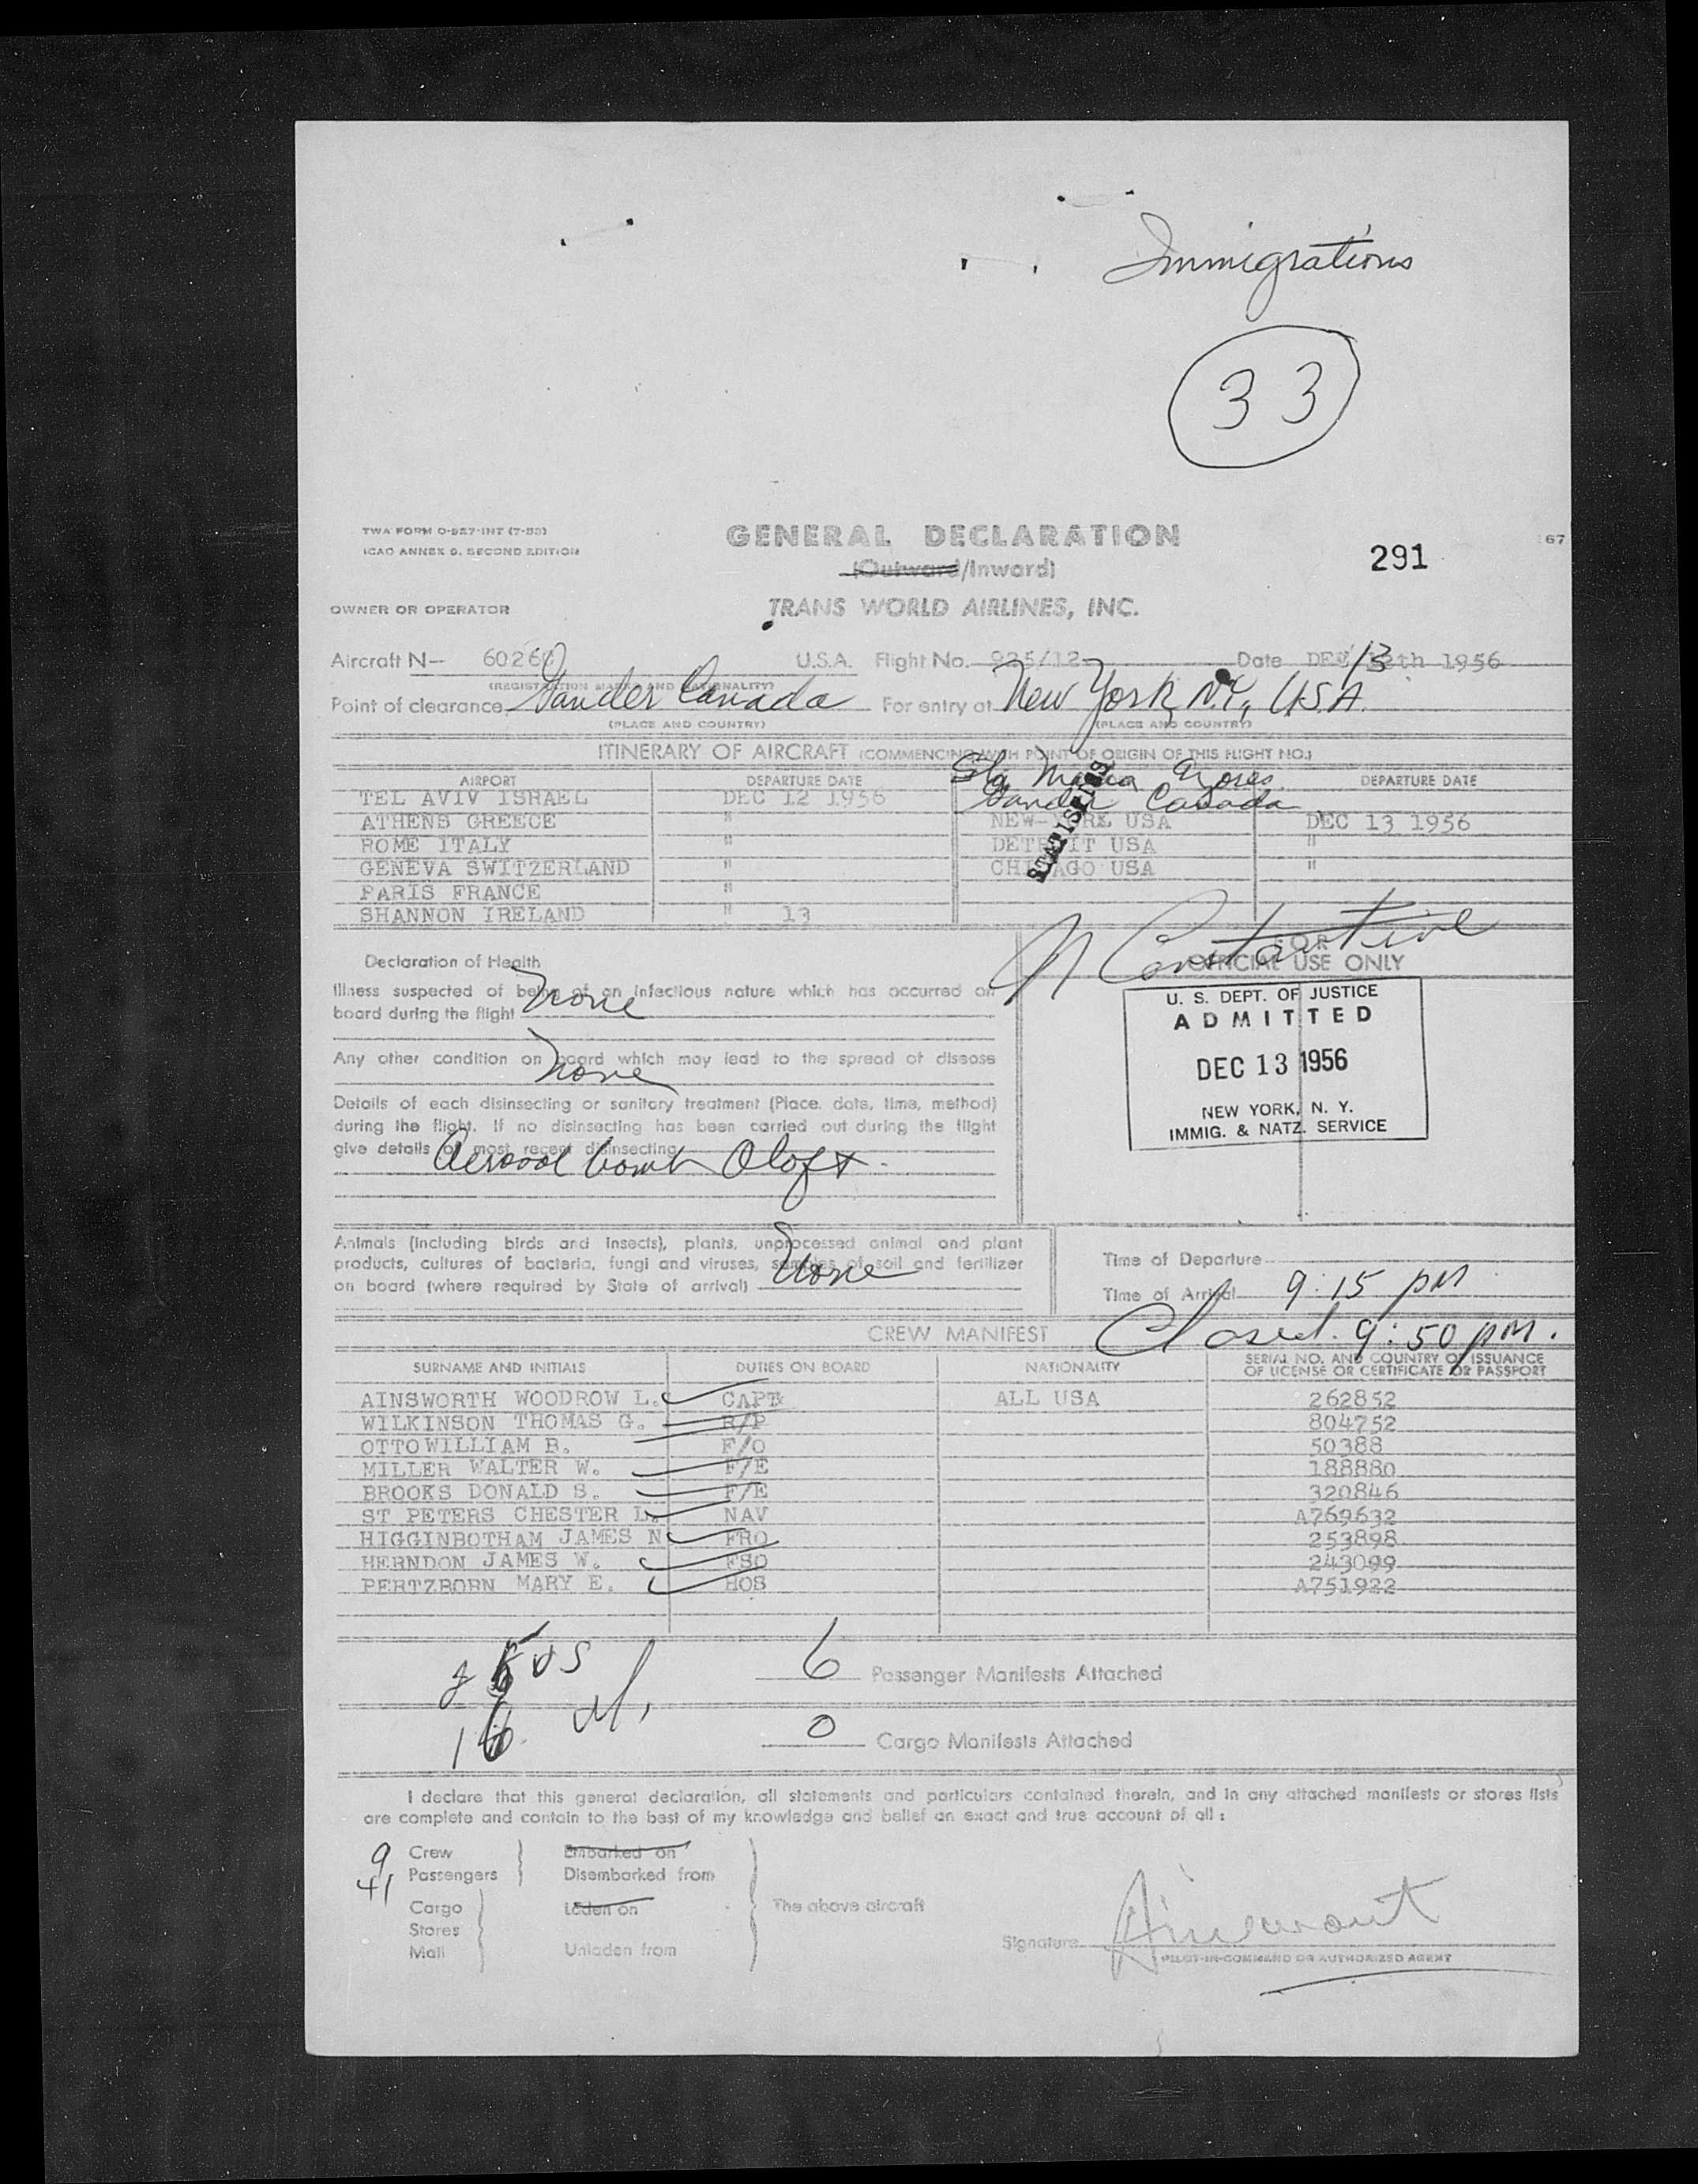 Immigrations
33
TWA FORM O-927-INT (7-53)
ICAO ANNEX 9. SECOND EDITION
GENERAL DECLARATION
67
291
(Outward/Inward)
OWNER OR OPERATOR
TRANS WORLD AIRLINES, INC.
Aircraft N- 6026 U.S.A. Flight No. 925/12 Date DEC 13 12th 1956
(REGISTRATION MARKS AND NATIONALITY)
Point of clearance Gander Canada For entry at New York, N.Y., USA.
(PLACE AND COUNTRY) (PLACE AND COUNTRY)
ITINERARY OF AIRCRAFT (COMMENCING WITH POINT OF ORIGIN OF THIS FLIGHT NO.)
AIRPORT DEPARTURE DATE Sta Maria Azores DEPARTURE DATE
TEL AVIV ISRAEL DEC 12 1956 Gander Canada
ATHENS GREECE " NEW-YORK USA DEC 13 1956
ROME ITALY " DETROIT USA "
GENEVA SWITZERLAND " CHICAGO USA "
PARIS FRANCE "
SHANNON IRELAND " 13
STATISTICS
N Constantine
Declaration of Health
FOR
OFFICIAL USE ONLY
Illness suspected of being of an infectious nature which has occurred on
board during the flight None
Any other condition on board which may lead to the spread of disease
None
Details of each disinsecting or sanitary treatment (Place, date, time, method)
during the flight. If no disinsecting has been carried out during the flight
give details of most recent disinsecting
Aerosol bomb Aloft.
U. S. DEPT. OF JUSTICE
ADMITTED
DEC 13 1956
NEW YORK, N. Y.
IMMIG. & NATZ. SERVICE
Animals (including birds and insects), plants, unprocessed animal and plant
products, cultures of bacteria, fungi and viruses, samples of soil and fertilizer
on board (where required by State of arrival) None
Time of Departure
Time of Arrival 9:15 pm
Closed. 9:50 pm.
CREW MANIFEST
SURNAME AND INITIALS DUTIES ON BOARD NATIONALITY SERIAL NO. AND COUNTRY OF ISSUANCE
OF LICENSE OR CERTIFICATE OR PASSPORT
AINSWORTH WOODROW L. CAPT ALL USA 262852
WILKINSON THOMAS G. R/P 804752
OTTO WILLIAM B. F/O 50388
MILLER WALTER W. F/E 188880
BROOKS DONALD S. F/E 320846
ST PETERS CHESTER L. NAV A769632
HIGGINBOTHAM JAMES N FRO 253898
HERNDON JAMES W. FSO 243099
PERTZBORN MARY E. HOS A751922
6 Passenger Manifests Attached
0 Cargo Manifests Attached
I declare that this general declaration, all statements and particulars contained therein, and in any attached manifests or stores lists
are complete and contain to the best of my knowledge and belief an exact and true account of all :
9 Crew Embarked on
41 Passengers Disembarked from
Cargo Laden on The above aircraft
Stores
Mail Unladen from
Signature
PILOT-IN-COMMAND OR AUTHORIZED AGENT